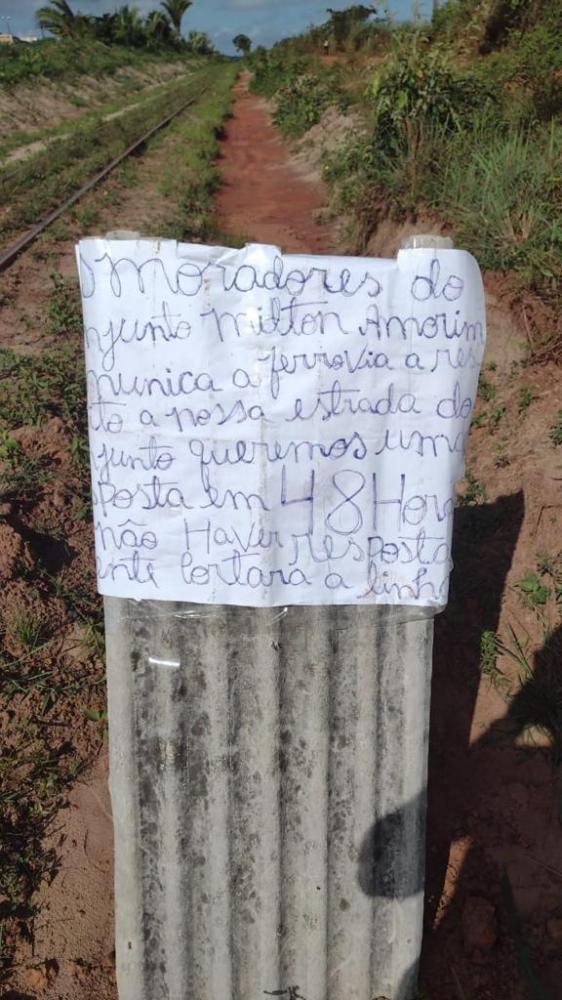 s moradores do
njunto milton Amorim
munica a ferrovia a res
to a nossa estrada do
junto queremos uma
posta em 48 Hor
não Haver resposta
ente cortara a linh